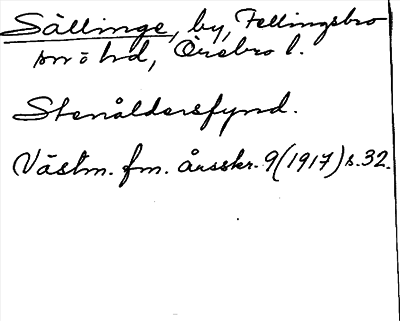 Sällinge, by, Fellingsbro
sn o hd, Örebro l.
Stenåldersfynd.
Västm. fm. årsskr. 9(1917) s. 32.